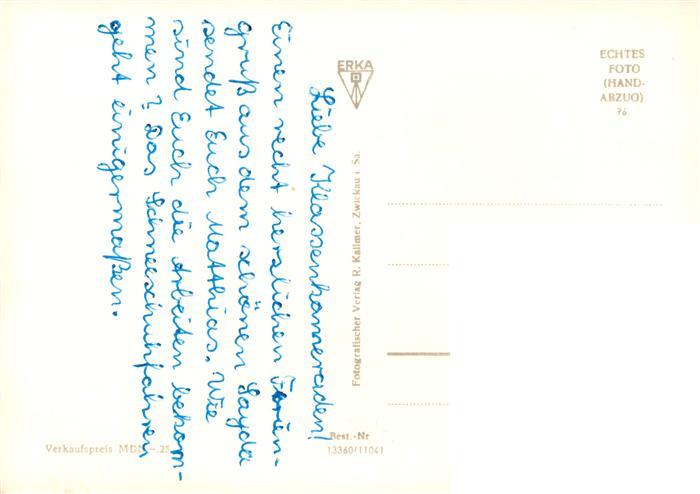 Liebe Klassenkameraden!
Einen recht herzlichen
gruß aus dem schönen Sayda
sendet Euch Matthias. Wie
sind Euch die Arbeiten bekom-
men? Das Schneeschuhfahren
geht einigermaßen.
ERKA
ECHTES
FOTO
(HAND-
ABZUG)
76
Fotografischer Verlag R. Kallmer, Zwickau i. Sa.
Best.-Nr
13360/11041
Verkaufspreis MDN -.25